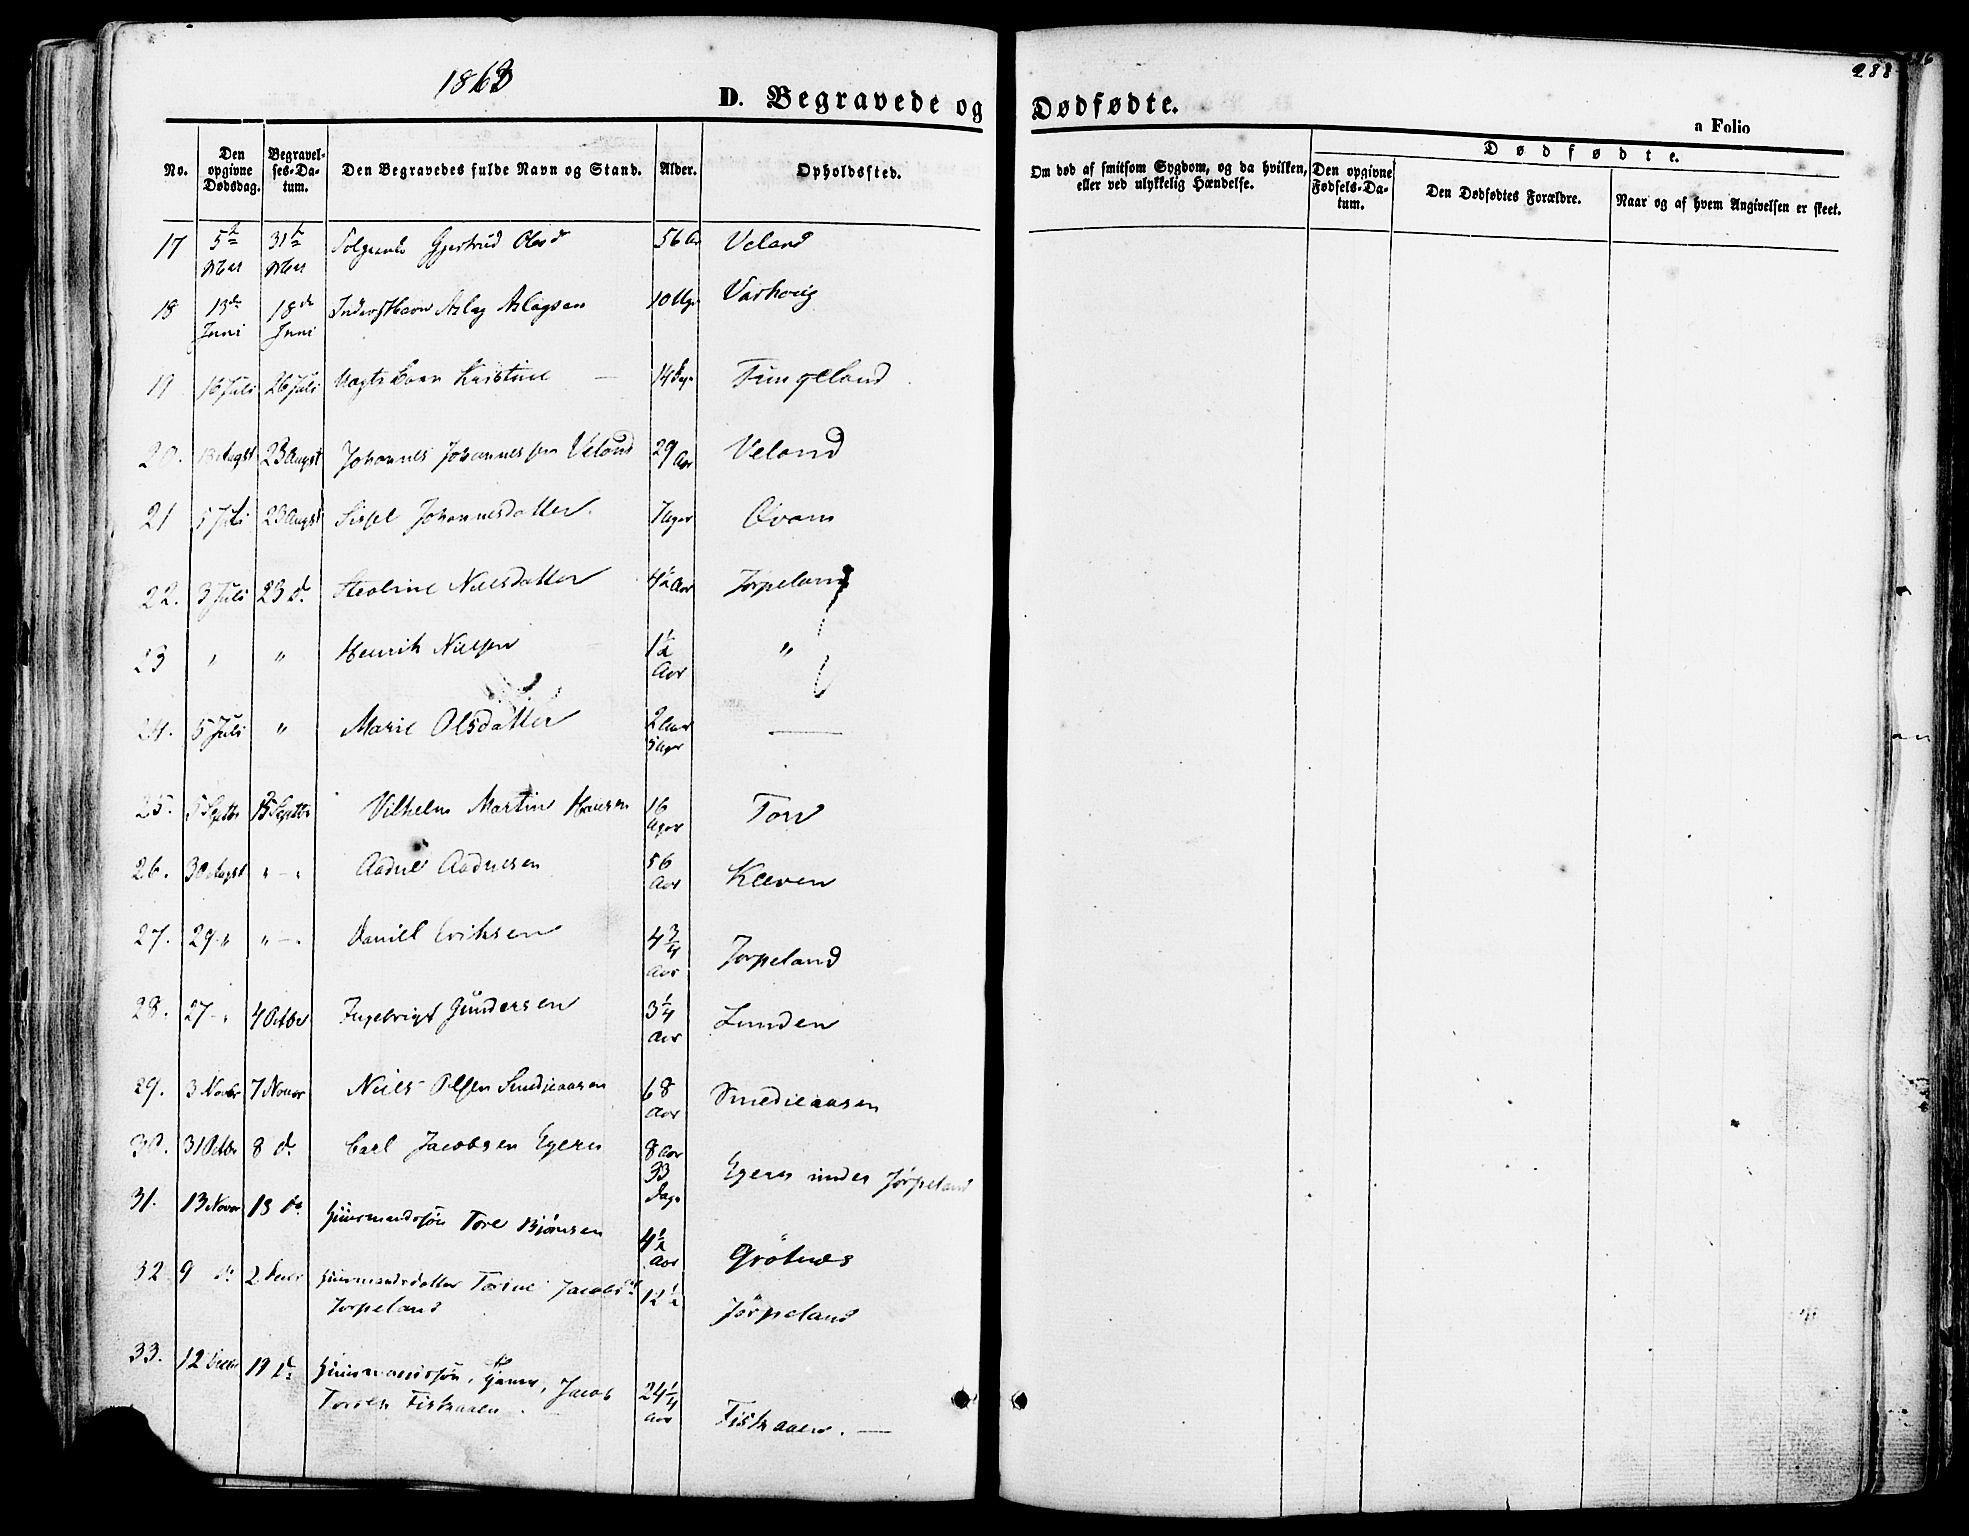 1863
288
D. Begravede og Dødfødte.
a Folio
No.
Den opgivne Dødsdag.
Begravelses-Datum.
Den Begravedes fulde Navn og Stand.
Alder.
Opholdssted.
Om død af smitsom Sygdom, og da hvilken, eller ved ulykkelig Hændelse.
Dødfødte.
Den opgivne Fødsels-Datum.
Den Dødfødtes Forældre.
Naar og af hvem Angivelsen er skeet.
17 5te 31te Gjertrud Olsd 56 Veland
18 13de Juni 18de Juni Aslag Aslagsen 10 Ugr
19 16 Juli 26 Juli Kristine 14 Dge Tungeland
20. Augst 23 Augst Johannes Johannessen Veland 29 Aar Veland
21 5 Juli 23 Augst Sissel Johannesdatter. 7 Uger Qvam
22. 3 Juli 23 d. Nielsdatter 4½ Aar Jørpeland
23 " " Henrik Nielsen 1½ Aar "
24. 5 Juli " Marie Olsdatter 2 Aar 5 Uger —
25. 5 Septbr 15 Septbr Vilhelm Martin Hansen 16 Uger Tou
26. 30 Augst " - " Aadne Aadnesen 56 Aar Kleven
27. 29 " " - " Daniel Eriksen 4¾ Aar Jørpeland
28. 27 - " 4 Octbr Ingebrigt Gundersen 3¼ Aar Lunden
29. 3 Novbr 7 Novbr Niels Olsen Smedieaasen 68 Aar Smedieaasen
30. 31 Octbr 8 d. Carl Jacobsen Egeres 8 Aar 33 Dage Egeres under Jørpeland
31. 13 Novbr 13 do Huusmandssøn Tore Bjørnsen 4½ Aar Grötnes
32 9 do 2 Decbr Huusmandsdatter Torine Jacobsd 12½ Jørpeland
Jørpeland
33. 12 Decbr 19 do Huusmandssøn, Jacob 24¼ Aar Fiskaaen. —
Toresen Fiskaaen